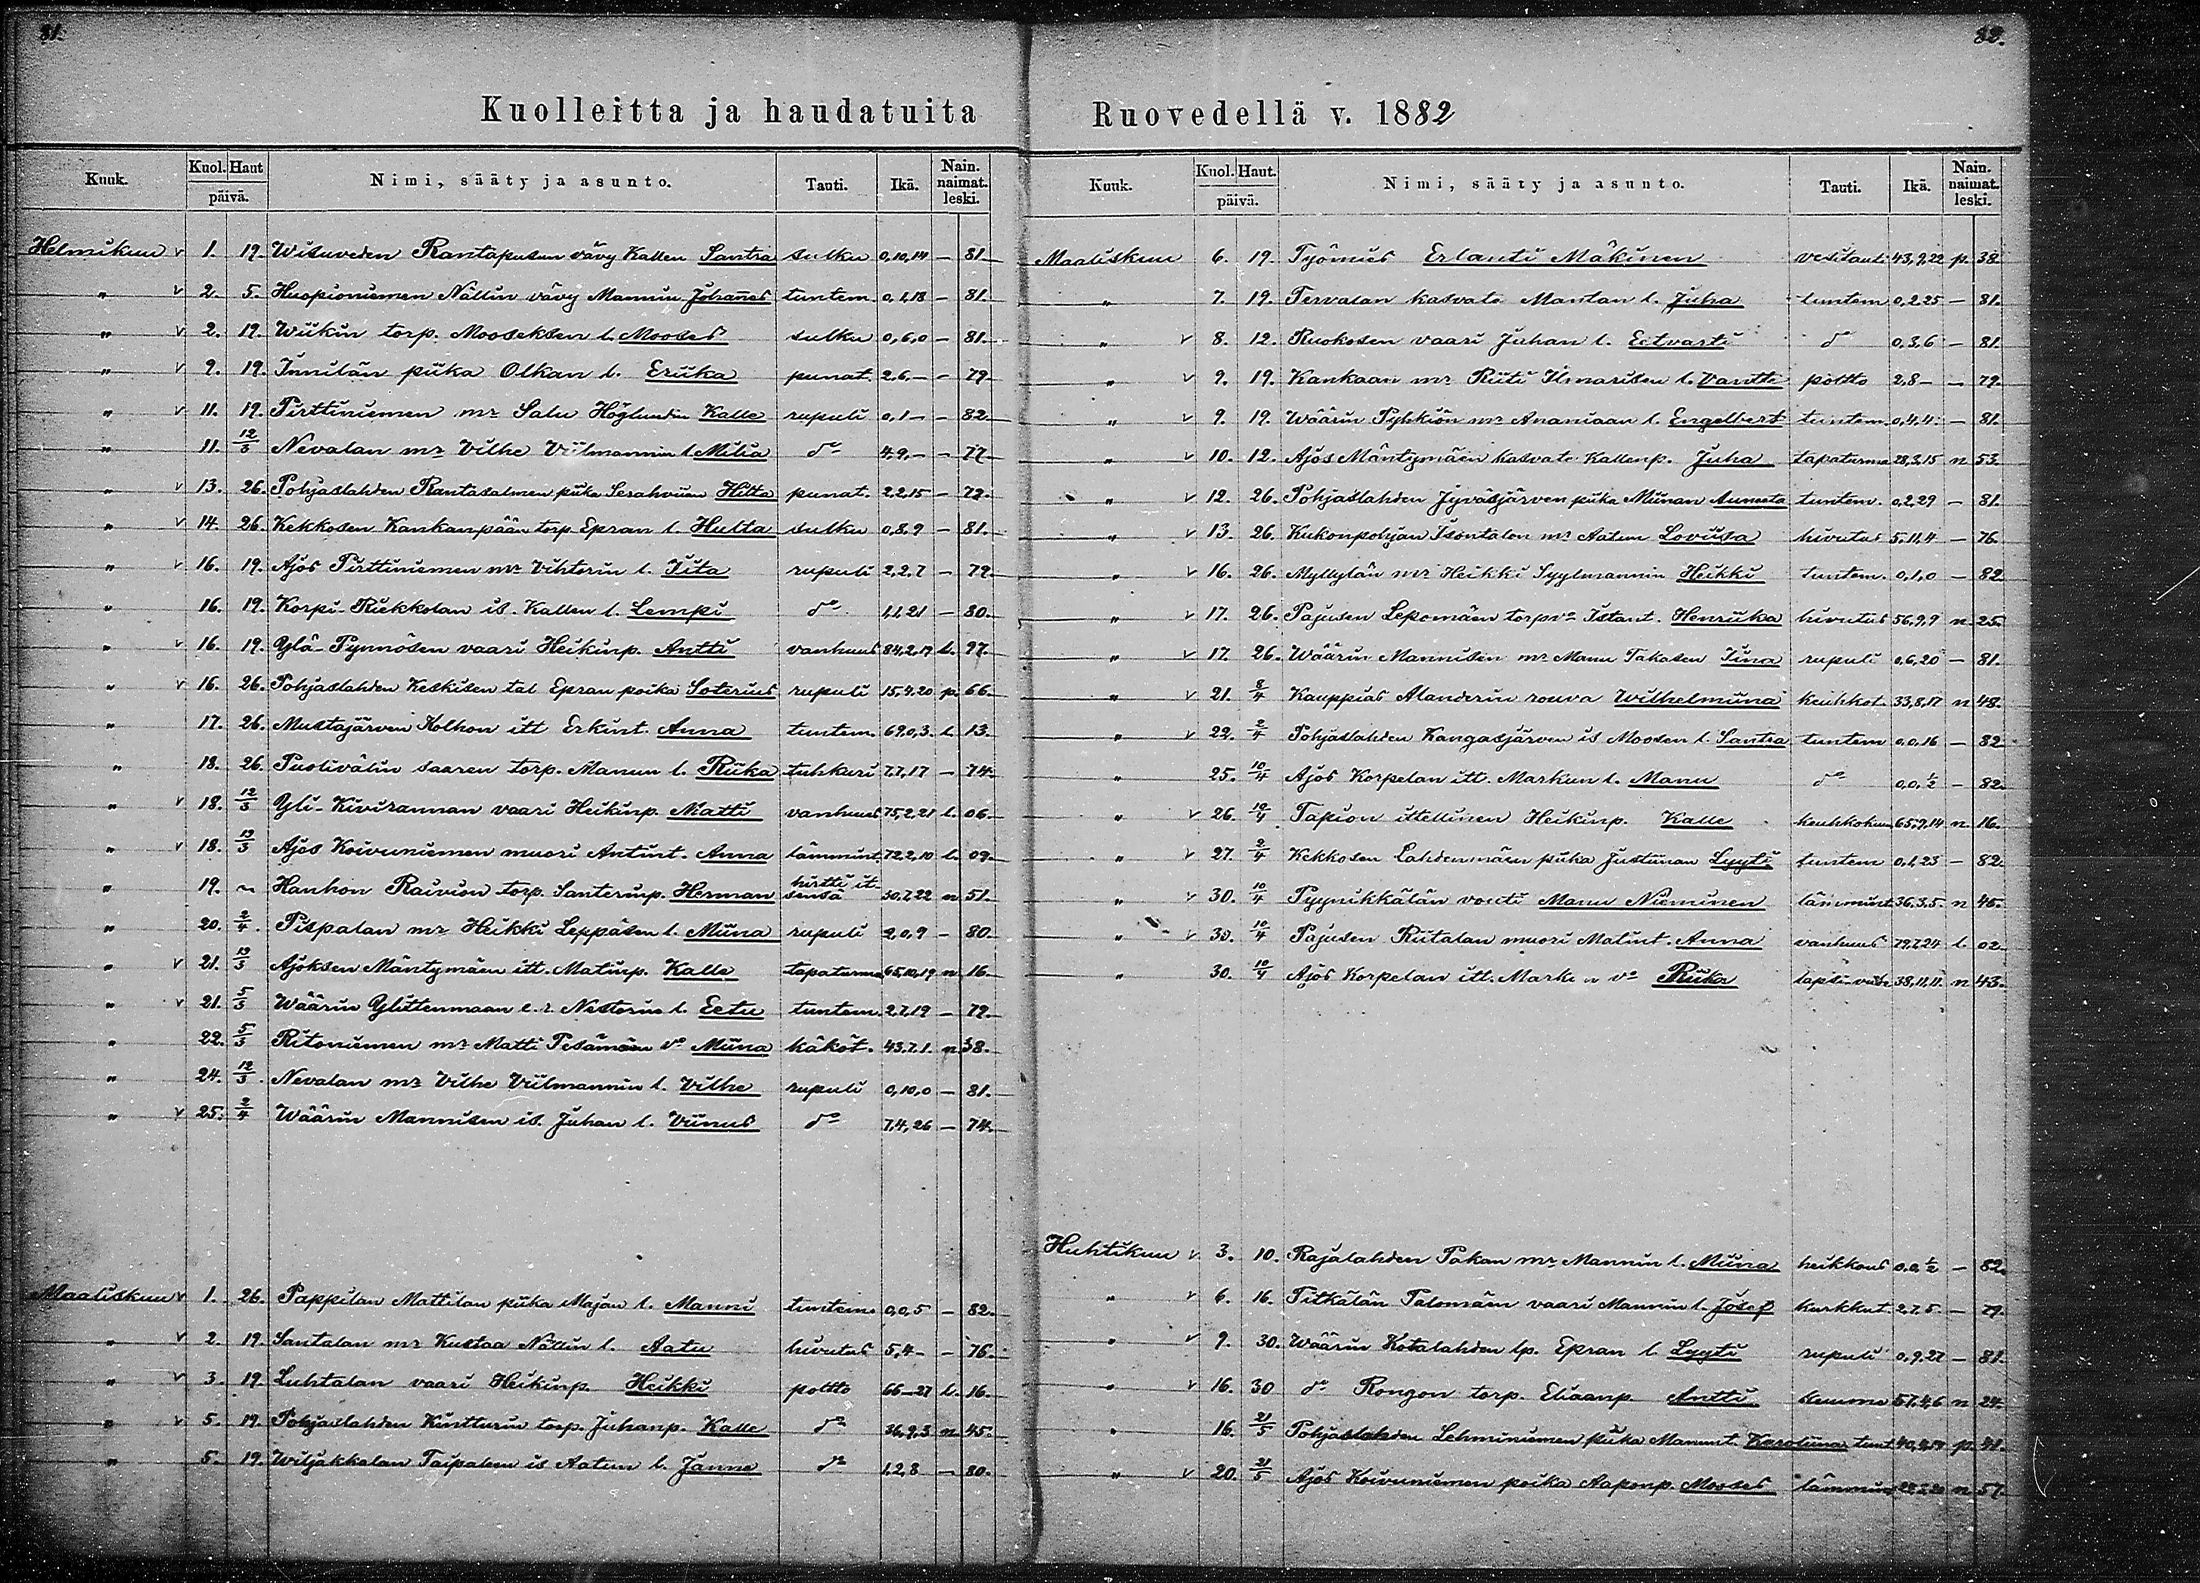 81.
82.
Kuolleitta ja haudatuita Ruovedellä v. 1882
Kuuk. Kuol. Haut päivä. Nimi, sääty ja asunto. Tauti. Ikä. Nain. naimat. leski.
Helmikuu v 1. 19. Wisuveden Rantapusun vävy Kallen Santra sulku 0,10,14 — 81.
" v 2. 5. Huopioniemen Nätlin vävy Mannin Johanes tuntem. 0,1,18 — 81.
" v 2. 19. Wiikin torp. Mooseksen l. Mooses sulku 0,6,0 — 81.
" v 9. 19. Innilän piika Olkan l. Eriika punat. 2,6,— — 79.
" v 11. 19. Pirttiniemen mr Salu Höglundin Kalle rupuli 0,1— — 82.
" 11. 12/3 Nevalan mr Vilhe Viilmannin l Milia do 4,9,— — 77.
" v 13. 26. Pohjaslahden Rantasalmen piika Serahviian Hilta punat. 2,2,15 — 79.
" v 14. 26. Kekkosen Kankanpään torp. Epran l. Hulta sulku 0,8,9 — 81.
" v 16. 19. Ajos Pirttiniemen mr Vihtorin l. Iita rupuli 2,2,7 — 79.
" 16. 19. Korpi-Riekkolan is. Kallen l. Lempi do 1,1,21 — 80.
" v 16. 19. Ylä-Pynnösen vaari Heikinp. Antti vanhuus 84,2,19 l. 97.
" v 16. 26. Pohjaslahden Keskisen tal Epran poika Soterius rupuli 15,4,20 p. 66.
" 17. 26. Mustajärven Kolhon itt Erkint. Anna tuntem. 69,0,3. l. 13.
" 18. 26. Puolivälin saaren torp. Manun l. Riika tuhkuri 7,7,17 — 74.
" v 18. 12/3 Yli-Kivirannan vaari Heikinp. Matti vanhuus 75,2,21 l. 06.
" v 18. 19/3 Ajos Koivuniemen muori Antint. Anna lämmint. 72,2,10 l. 09.
" 19. ~ Hanhon Raivion torp. Santerinp. Herman hirtti itsensä 30,7,22 n 51.
" 20. 2/4. Pispalan mr Heikki Leppäsen l. Miina rupuli 2,0,9 — 80.
" v 21. 19/3 Ajoksen Mäntymäen itt. Matinp. Kalle tapaturma 65,10,19 n 16.
" v 21. 5/3 Wäärin Ylittenmaan e.r. Nestorin l. Eetu tuntem. 2,7,19 — 79.
" 22. 5/3 Ritoniemen mr Matti Pesämäen vo Miina käköt. 43,7,1. n 38.
" 24. 12/3. Nevalan mr Vilhe Viilmannin l. Vilhe rupuli 0,10,0 — 81.
" v 25. 2/4 Wäärin Mannisen is. Juhan l. Viinus do 7,4,26 — 74.
Maaliskuu v 1. 26. Pappilan Mattilan piika Majan l. Manni tuntem. 0,0,5 — 82.
" v 2. 19. Santalan mr Kustaa Nätlin l. Aatu hivutus 5,4— — 76.
" v 3. 19. Luhtalan vaari Heikinp. Heikki poltto 66—27 l. 16.
" v 5. 19. Pohjaslahden Kintturin torp. Juhanp. Kalle do 36,9,3 n 45.
" 5. 19. Witjakkalan Taipaleen is Aatun l. Janne do 1,2,8 — 80.
Kuuk. Kuol. Haut. päivä. Nimi, sääty ja asunto. Tauti. Ikä. Nain. naimat. leski.
Maaliskuu 6. 19. Työmies Erlanti Mäkinen vesitauti 43,9,22 p. 38
" 7. 19. Tervalan kasvate Mantan l. Juha tuntem 0,2,25 — 81.
" v 8. 12. Ruokosen vaari Juhan l. Eetvarti do 0,3,6 — 81.
" v 9. 19. Kankaan mr Riiti Ilmarisen l. Vantti poltto 2,8— — 79.
" v 9. 19. Wäärin Pyhkiön mr Ananiaan l. Engelbert tuntem. 0,4,4. — 81.
" v 10. 12. Ajos Mäntymäen kasvate Kallenp. Juha tapaturma 28,3,15 n 53.
" v 12. 26. Pohjaslahden Jyväsjärven piika Miinan Auneeta tuntem. 0,2,29 — 81.
" v 13. 26. Kukonpohjan Isontalon mr Aatun Loviisa hivutus 5,11,4 — 76.
" v 16. 26. Myllylän mr Heikki Syylmannin Heikki tuntem. 0,1,0 — 82.
" v 17. 26. Pajusen Lepomäen torp vo Istant. Henriika hivutus 56,9,9 n 25.
" v 17. 26. Wäärin Mannisen mr Manu Takasen Iina rupuli 0,6,20 — 81.
" v 21. 8/4 Kauppias Alanderin rouva Wilhelmiina keuhkot. 33,8,17 n 48.
" v 22. 2/4 Pohjaslahden Kangasjärven is Moosen l. Santra tuntem 0,0,16 — 82
" 25. 10/4 Ajos Korpelan itt. Markun l. Manu do 0,0,½ — 82.
" v 26. 10/4 Tapion ittellinen Heikinp. Kalle keuhkokuu 65,9,14 n. 16.
" v 27. 2/4 Kekkosen Lahdenmäen piika Justiinan Lyyti tuntem 0,1,23 — 82
" v 30. 10/4 Pyynikkälän vouti Manu Nieminen lämmint. 36,3,5. n 45.
" v 30. 10/4 Pajusen Riitalan muori Matint. Anna vanhuus 79,7,24 l. 02.
" 30. 10/4 Ajos Korpelan itt. Markun vo Riika lapsi-vuode 38,11,11. n 43.
Huhtikuu v 3. 10. Rajalahden Pakan mr Mannin l. Miina heikkous 0,0,½ — 82.
" v 6. 16. Pitkälän Talomäen vaari Mannin l. Josef kurkkut. 2,7,5 — 79.
" v 9. 30. Wäärin Kotalahden lp. Epran l. Lyyti rupuli 0,9,27 — 81.
" v 16. 30 do Rongon torp. Eliaanp Antti 57,4,6 n 24.
" 16. 21/5 Pohjaslahden Lehminiemen piika Manunt. Karoliina tunt p. 41.
" v 20. 21/5 Ajos Koivuniemen poika Aaponp. Mooses lämmin n 57.